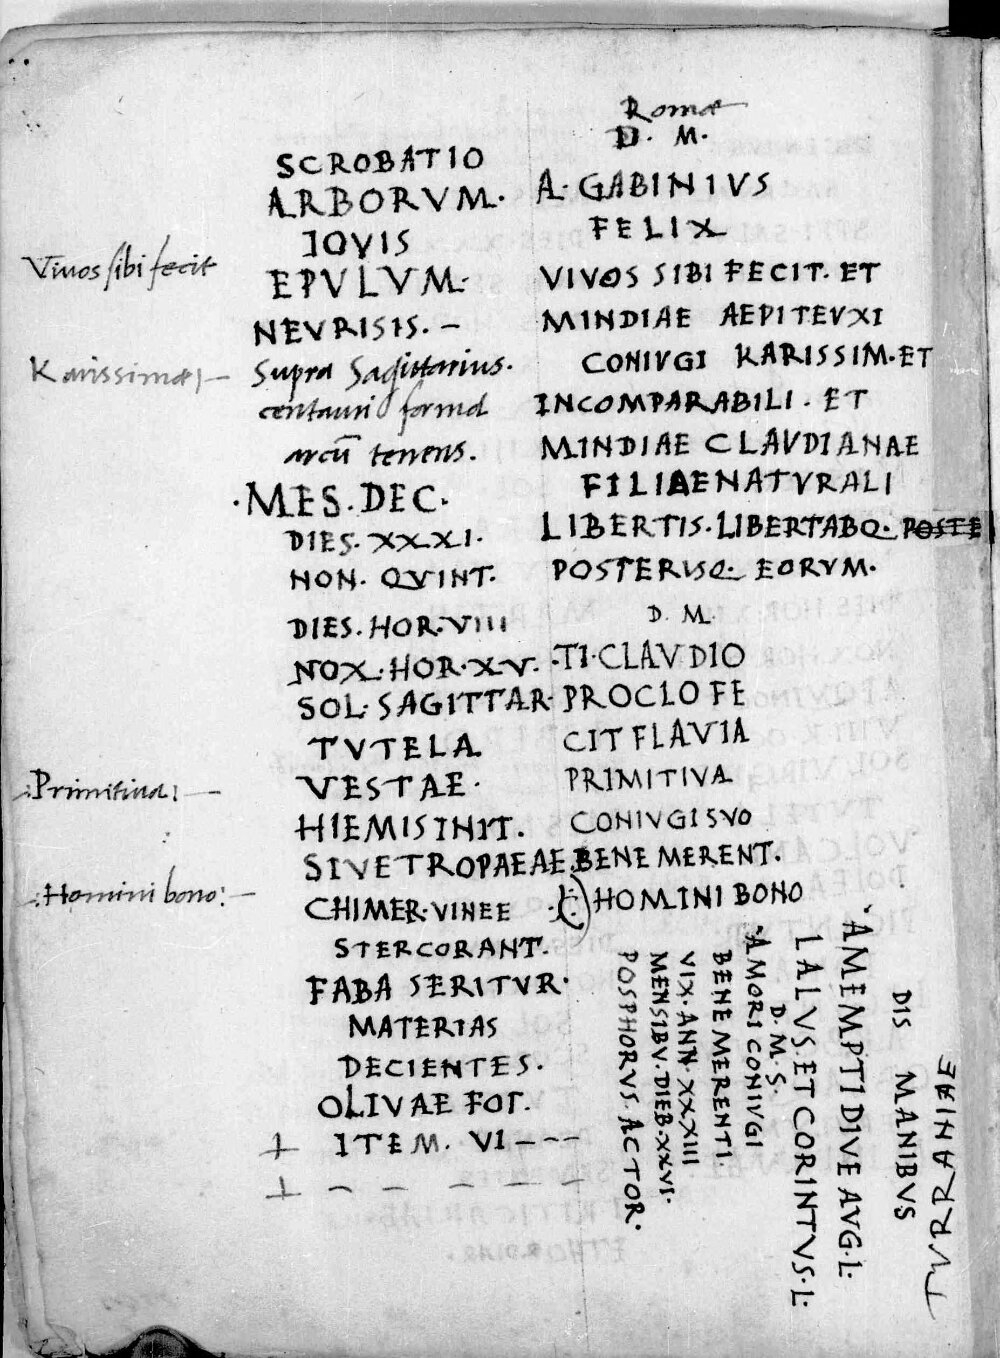 Vivos sibi fecit
Karissimae
Primitiva
Homini bono
SCROBATIO
ARBORVM.
IOVIS
EPVLVM.
NEVRISIS. –
Supra Sagittarius.
centauri forma
arcū tenens.
.MES.DEC.
DIES.XXXI.
NON. QVINT.
DIES.HOR.VIIII
NOX.HOR.XV.
SOL.SAGITTAR.
TVTELA
VESTAE.
HIEMISINIT.
SIVETROPAEAE.
CHIMER.VINEE
STERCORANT.
FABA SERITVR.
MATERIAS
DECIENTES.
OLIVAE FOT.
ITEM. VI – – –
Romae
D. M.
A. GABINIVS
FELIX
VIVOS SIBI FECIT. ET
MINDIAE AEPITEVXI
CONIVGI KARISSIM.ET
INCOMPARABILI. ET
MINDIAE CLAVDIANAE
FILIAENATVRALI
LIBERTIS.LIBERTABQ. POSTE
POSTERISQ. EORVM.
D. M.
.TI.CLAVDIO
PROCLO FE
CIT FLAVIA
PRIMITIVA
CONIVGISVO
BENE MERENT.
HOMINI BONO
D. M. S.
.AMORI CONIVGI
BENE MERENTI.
VIX.ANN.XXXIII
MENSIBV.DIEB.XXVI.
POSPHORVS. ACTOR.
DIS MANIBVS
TVRRANIAE
.AMEMPTI DIVE AVG.L.
LALVS.ET CORINTVS.L.